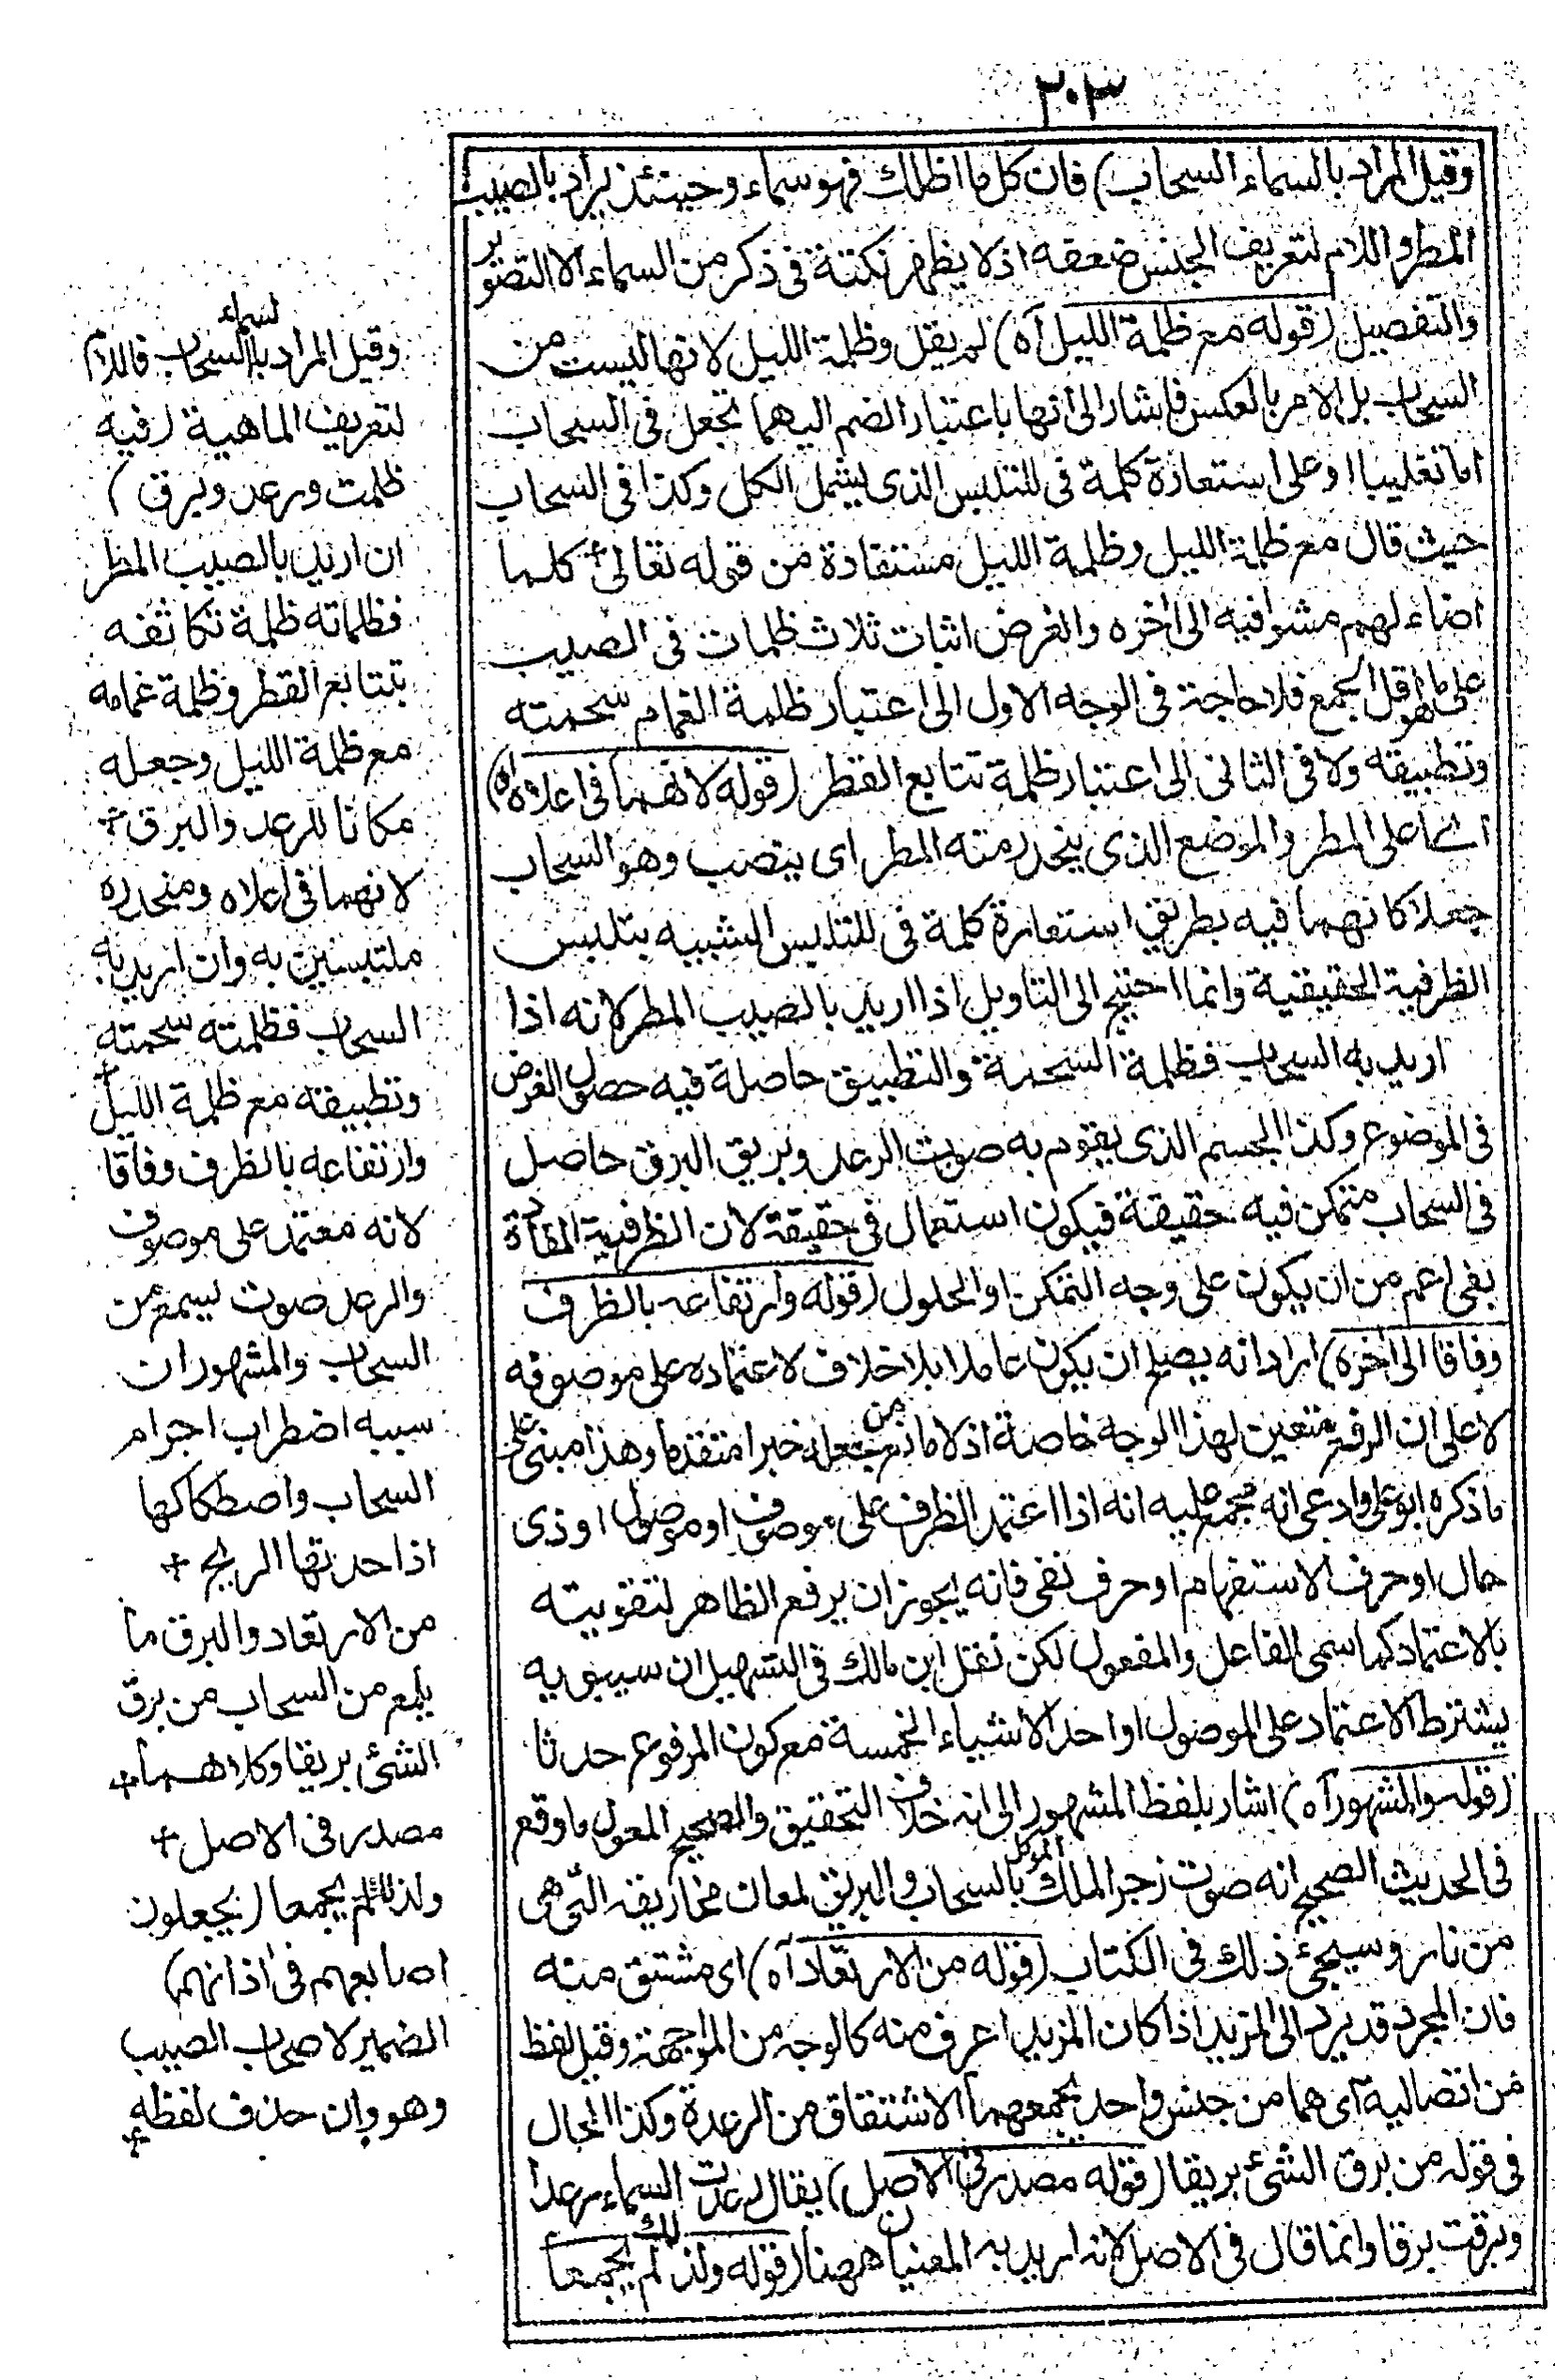 ٣٠٣
وقيل المراد بالسماء السحاب) فان كل ما اظلك فهو سماء وحينئذ يراد بالصيب
المطر واللام لتعريف الجنس ضعفه اذ لا يظهر نكتة فى ذكر من السماء الا التصوير
والتفصيل (قوله مع ظلمة الليل آه) لم يقل وظلمة الليل لانها ليست من
السحاب بل الامر بالعكس فاشار الى انها باعتبار الضم اليهما تجعل فى السحاب
اما تغليبا او على استعارة كلمة فى للتلبس الذى يشمل الكل وكذا فى السحاب
حيث قال مع ظلمة الليل وظلمة الليل مستفادة من قوله تعالى كلما
اضاء لهم مشوا فيه الى اخره والغرض اثبات ثلاث ظلمات فى الصيب
على ما هو اقل الجمع فلا حاجة فى الوجه الاول الى اعتبار ظلمة الغمام سحمته
وتطبيقه ولا فى الثانى الى اعتبار ظلمة تتابع القطر (قوله لانهما فى اعلاه اه)
اى اعلى المطر والموضع الذى ينحدر منه المطر اى ينصب وهو السحاب
جعلا كانهما فيه بطريق استعارة كلمة فى للتلبس الشبيه بتلبس
الظرفية الحقيقية وانما احتيج الى التاويل اذا اريد بالصيب المطر لانه اذا
اريد به السحاب فظلمة السحمة والتطبيق حاصلة فيه حصول العرض
فى الموضوع وكذا الجسم الذى يقوم به صوت الرعد وبريق البرق حاصل
فى السحاب متمكن فيه حقيقة فيكون استعمال فى حقيقة لان الظرفية المفادة
بفى اعم من ان يكون على وجه التمكن او الحلول (قوله وارتفاعه بالظرف
وفاقا الى اخره) اراد انه يصلح ان يكون عاملا بلا خلاف لاعتماده على موصوفه
لا على ان الرفع متعين لهذا الوجه خاصة اذ لا مانع من جعله خبرا متقدما وهذا مبنى على
ما ذكره ابو على وادعى انه مجمع عليه انه اذا اعتمد الظرف على موصوف او موصول او ذى
حال او حرف الاستفهام او حرف نفى فانه يجوز ان يرفع الظاهر لتقويته
بالاعتماد كما اسمى الفاعل والمفعول لكن نقل ابن مالك فى التسهيل ان سيبويه
يشترط الاعتماد على الموصول او احد الاشياء الخمسة مع كون المرفوع حدثا
(قوله والمشهور آه) اشار بلفظ المشهور الى انه خلاف التحقيق والصحيح المعول ما وقع
فى الحديث الصحيح انه صوت زجر الملك الموكل بالسحاب والبريق لمعان مخاريقه التى هى
من نار وسيجئ ذلك فى الكتاب (قوله من الارتعاد آه) اى مشتق منه
فان المجرد قد يرد الى المزيد اذا كان المزيد اعرف منه كالوجه من المواجهة وقيل لفظ
من اتصالية اى هما من جنس واحد يجمعهما الاشتقاق من الرعدة وكذا الحال
فى قوله من برق الشئ بريقا (قوله مصدر فى الاصل) يقال رعدت السماء رعدا
وبرقت برقا وانما قال فى الاصل لانه اريد به المعنيان ههنا (قوله ولذلك لم يجمعا
وقيل المراد بالسماء السحاب فاللام
لتعريف الماهية (فيه
ظلمت ورعد وبرق)
ان اريد بالصيب المطر
فظلماته ظلمة تكاثفه
بتتابع القطر وظلمة غمامه
مع ظلمة الليل وجعله
مكانا للرعد والبرق
لانهما فى اعلاه ومنحدره
ملتبسين به وان اريد به
السحاب فظلمته سحمته
وتطبيقه مع ظلمة الليل
وارتفاعه بالظرف وفاقا
لانه معتمد على موصوف
والرعد صوت يسمع من
السحاب والمشهور ان
سببه اضطراب اجرام
السحاب واصطكاكها
اذا حدتها الريح
من الارتعاد والبرق ما
يلمع من السحاب من برق
الشئ بريقا وكلاهما
مصدر فى الاصل
ولذلك لم يجمعا (يجعلون
اصابعهم فى اذانهم)
الضمير لاصحاب الصيب
وهو وان حذف لفظه